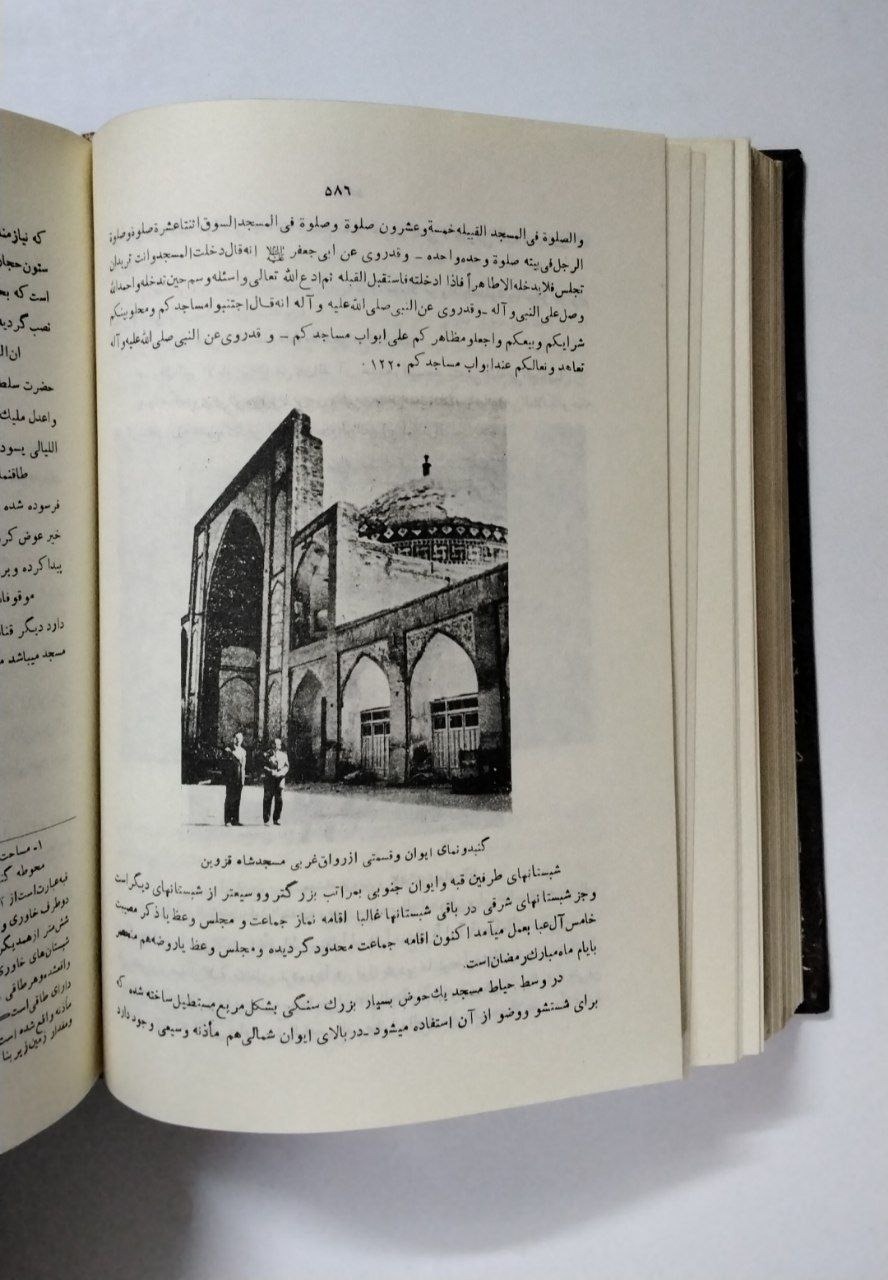 ۵۸۶
والصلوة فی المسجد القبیله خمسة وعشرون صلوة وصلوة فی المسجد السوق اثنتاعشرة صلوة وصلوة
الرجل فی بیته صلوة وحده واحده ـ وقدروی عن ابی جعفر انه قال دخلت المسجد وانت تریدان
تجلس فلا بدخله الاطاهراً فاذا ادخلته فاستقبل القبله ثم ادع الله تعالی واسئله وسم حین تدخله واحمدالله
وصل علی النبی و آله ـ وقدروی عن النبی صلی الله علیه و آله انه قال اجتنبو امساجد کم
شرایکم وبیعکم واجعلو مظاهر کم علی ابواب مساجد کم ـ و قدروی عن النبی صلی الله علیه و آله
تعاهد و نعالکم عندابواب مساجد کم ۱۲۲۰ .
گنبدونمای ایوان وقسمتی ازرواق غربی مسجدشاه قزوین
شبستانهای طرفین قبه وایوان جنوبی بمراتب بزرگتر ووسیعتر از شبستانهای دیگراست
وجز شبستانهای شرقی در باقی شبستانها غالبا اقامه نماز جماعت و مجلس وعظ یا ذکر مصیبت
خامس آل عبا بعمل میآمد اکنون اقامه جماعت محدود گردیده ومجلس وعظ یاروضه هم منحصر
بایام ماه مبارک رمضان است.
در وسط حیاط مسجد یك حوض بسیار بزرك سنگی بشکل مربع مستطیل ساخته شده که
برای شستشو ووضو از آن استفاده میشود ـ در بالای ایوان شمالی هم مأذنه وسیعی وجود دارد
که نیازمند
ستون حجا
است که بح
نصب گردید
ان ال
حضرت سلط
واعدل ملیك
اللیالی یسود
طاقنما
فرسوده شده
خبر عوض کر
پیدا کرده و بر
موقوفا
دارد دیگر قنا
مسجد میباشد م
۱ـ مساحت
محوطه گن
قبه عبارت است از
دوطرف خاوری و
شش متر ازهمدیگر
شبستان های خاوری
واقعشده وهر طاقی
دارای طاقی است
مأذنه واقع شده است
ومقدار زمین زیر بنا